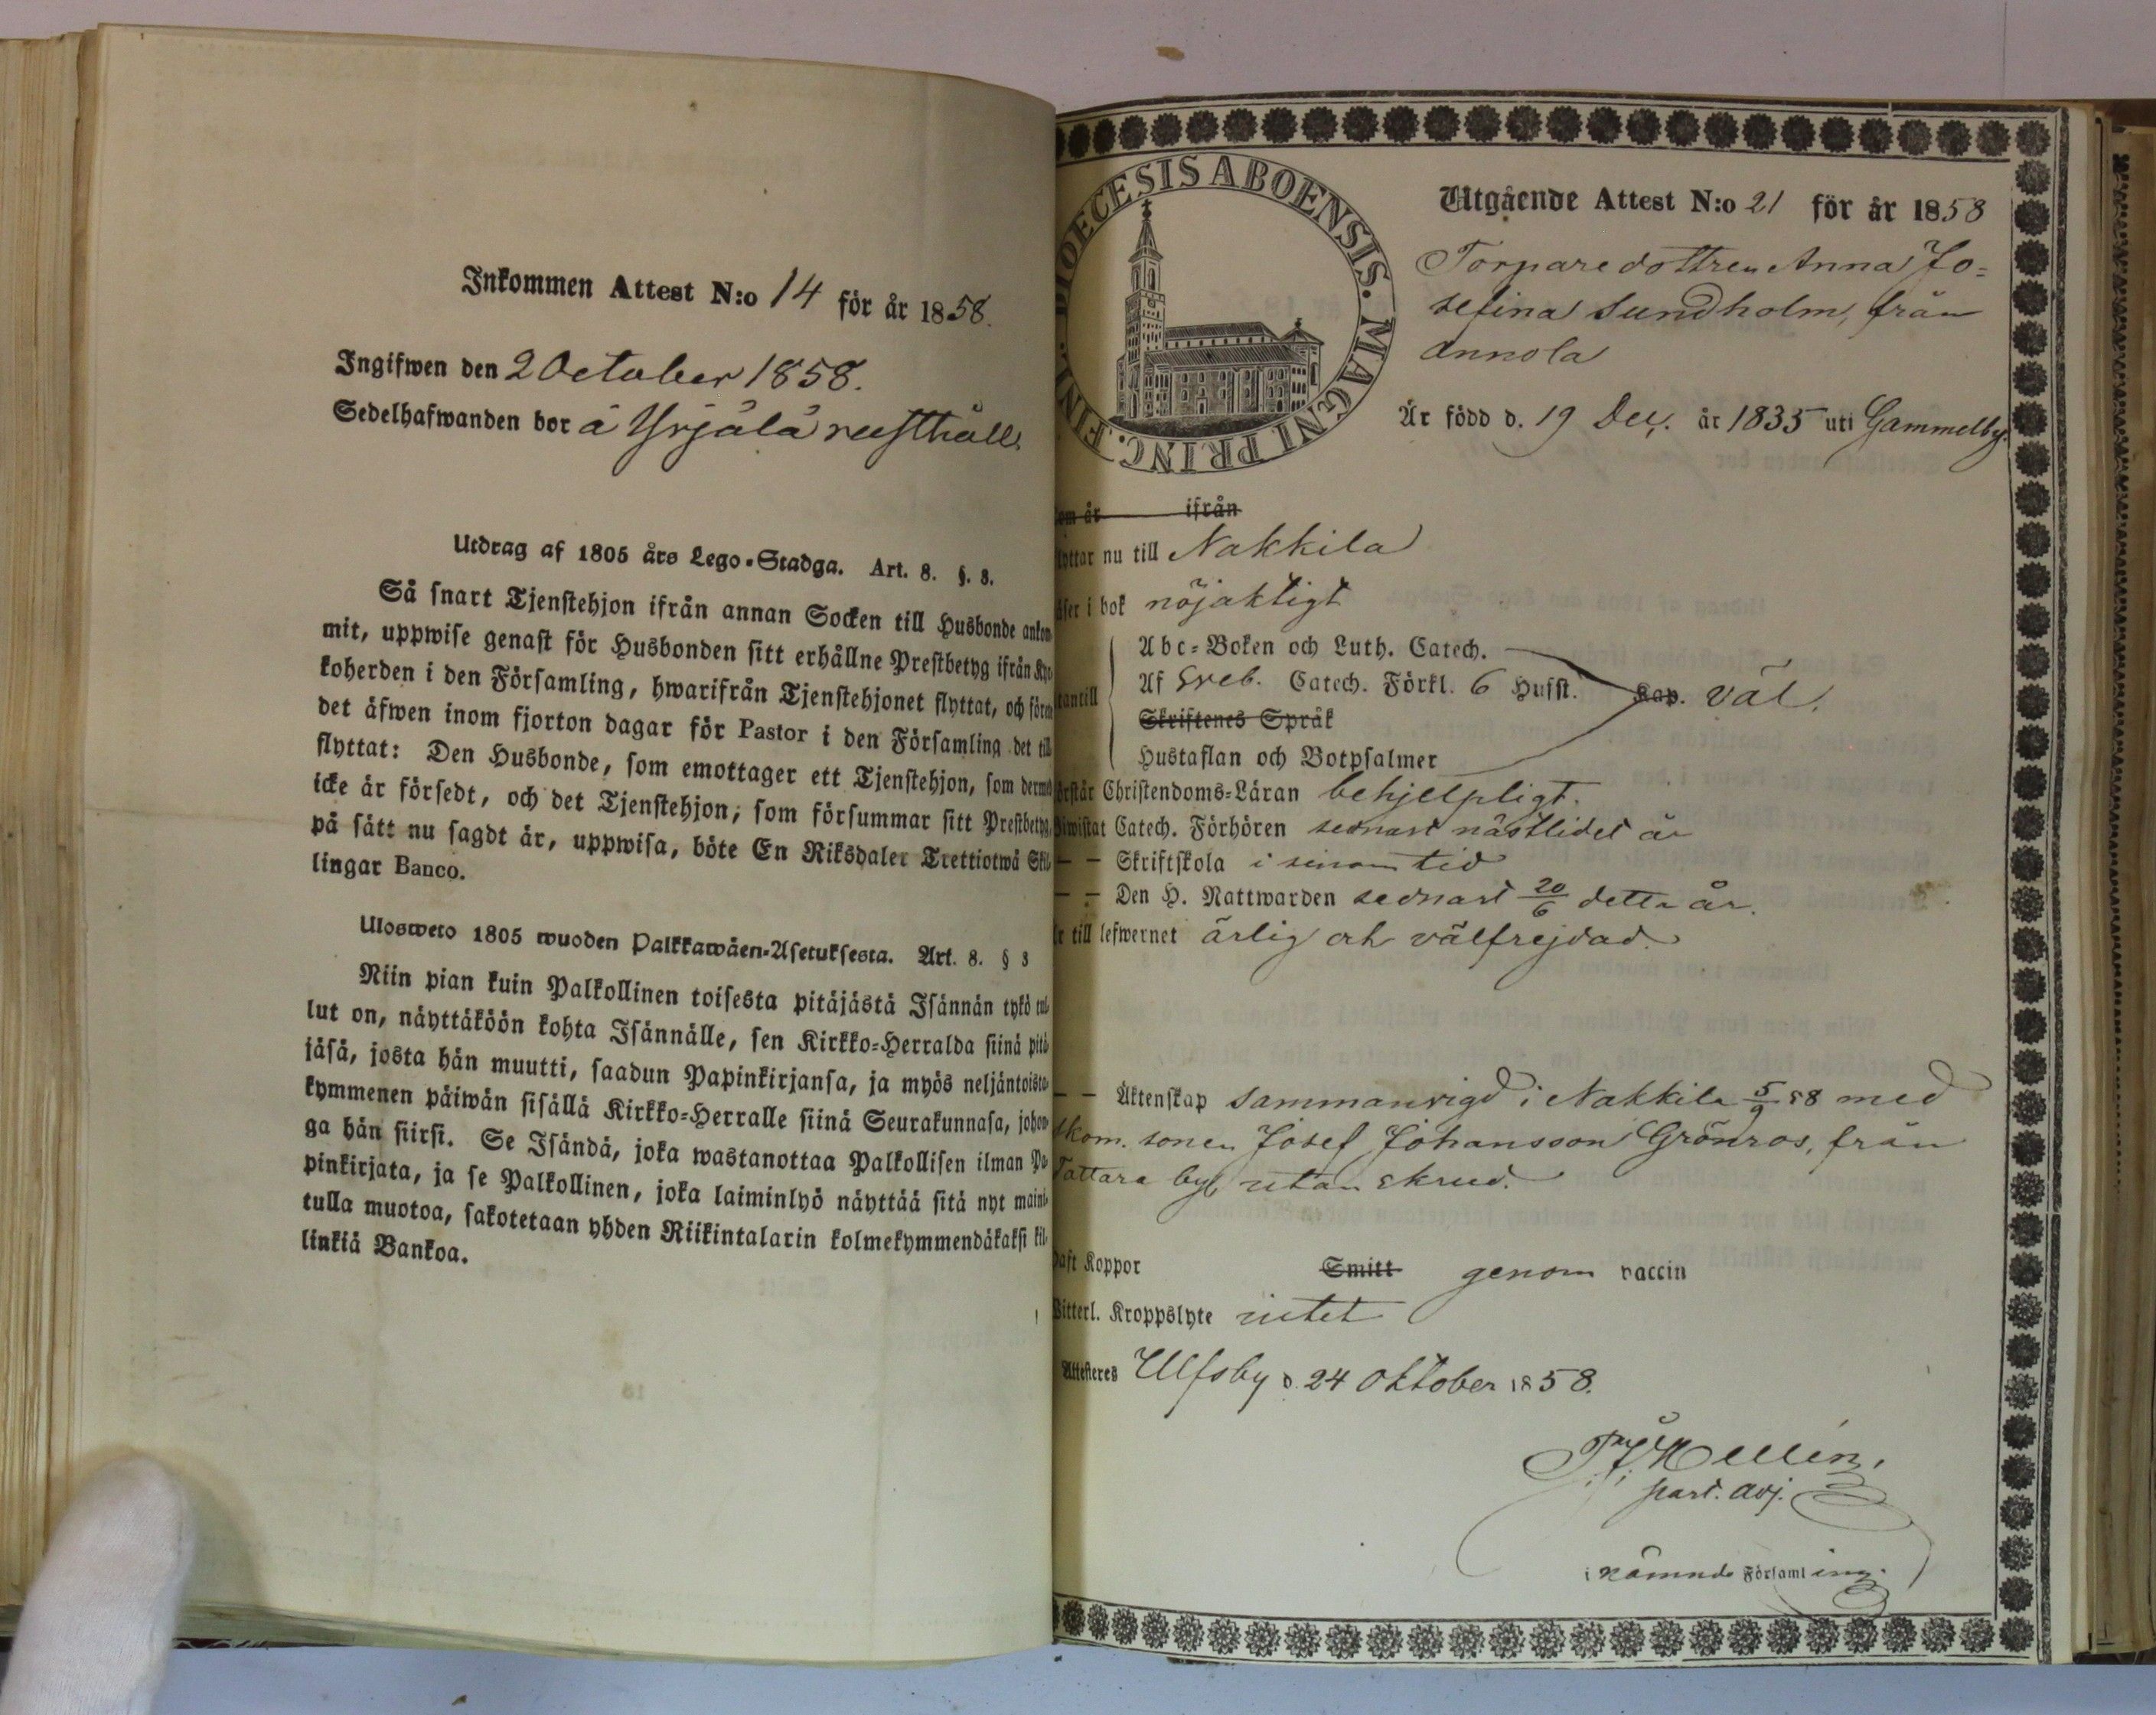 Inkommen Attest N:o 14 för år 1858.
Ingifwen den 2 October 1858.
Sedelhafwanden bor å Yrjälä rusthåll.
Utdrag af 1805 års Lego-Stadga. Art. 8. §. 8.
Så snart Tjenstehjon ifrån annan Socken till Husbonde ankom-
mit, uppwise genast för Husbonden sitt erhållne Prestbetyg ifrån Kyr-
koherden i den Församling, hwarifrån Tjenstehjonet flyttat, och förete
det äfwen inom fjorton dagar för Pastor i den Församling det till
flyttat: Den Husbonde, som emottager ett Tjenstehjon, som dermed
icke är försedt, och det Tjenstehjon, som försummar sitt Prestbetyg,
på sätt nu sagdt är, uppwisa, böte En Riksdaler Trettiotwå Skil-
lingar Banco.
Ulosweto 1805 wuoden Palkkawäen-Asetuksesta. Art. 8. § 8
Niin pian kuin Palkollinen toisesta pitäjästä Isännän tykö tul-
lut on, näyttäköön kohta Isännälle, sen Kirkko-Herralda siinä pitä-
jäsä, josta hän muutti, saadun Papinkirjansa, ja myös neljäntoista-
kymmenen päiwän sisällä Kirkko-Herralle siinä Seurakunnasa, johon-
ga hän siirsi. Se Isändä, joka wastanottaa Palkollisen ilman Pa-
pinkirjata, ja se Palkollinen, joka laiminlyö näyttää sitä nyt maini-
tulla muotoa, sakotetaan yhden Riikintalarin kolmekymmendäkaksi kil-
linkiä Bankoa.
DIOECESIS ABOENSIS. MAGNI PRINC. FINL.
Utgående Attest N:o 21 för år 1858
Torparedottren Anna Jo-
sefina Sundholm, från
Annola
Är född d. 19 Dec. år 1835 uti Gammelby.
om år ifrån
lyttar nu till Nakkila
äser i bok nöjaktigt
Abc-Boken och Luth. Catech.
Af Sveb. Catech. Förkl. 6 Hufst. Kap. väl.
tantill
Skriftenes Språk
Hustaflan och Botpsalmer
örstår Christendoms-Läran behjelpligt.
iwistat Catech. Förhören sednast nästlidet år
— — Skriftskola i sinom tid
— — Den H. Nattwarden sednast 20/6 detta år.
r till lefwernet ärlig och välfrejdad.
— — Äktenskap sammanvigd i Nakkila 5/9 58 med
skom. sonen Josef Johansson Grönros, från
Tattara by, utan skrud.
haft Koppor Smitt genom vaccin
Witterl. Kroppslyte intet
Attesteres Ulfsby d. 24 Oktober 1858.
past. adj.
i nämnde Församling.